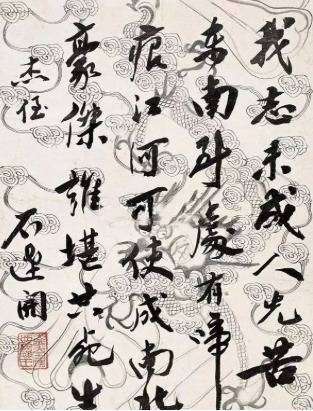 我志未成人先苦
東南到處有啼
痕江河可使成南北
豪傑誰堪共死生
杰
石達開